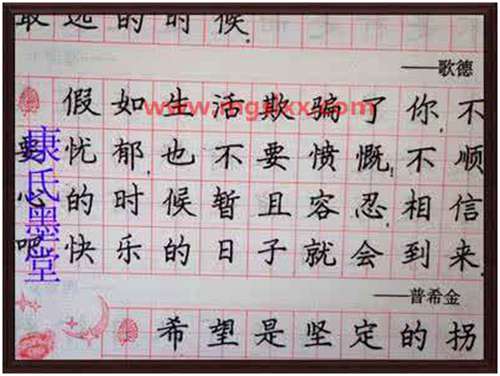 最远的时候.
——歌德
假如生活欺骗了你,不
要忧郁,也不要愤慨.不顺
心的时候暂且容忍,相信
吧快乐的日子就会到来.
——普希金
希望是坚定的拐
康氏墨堂